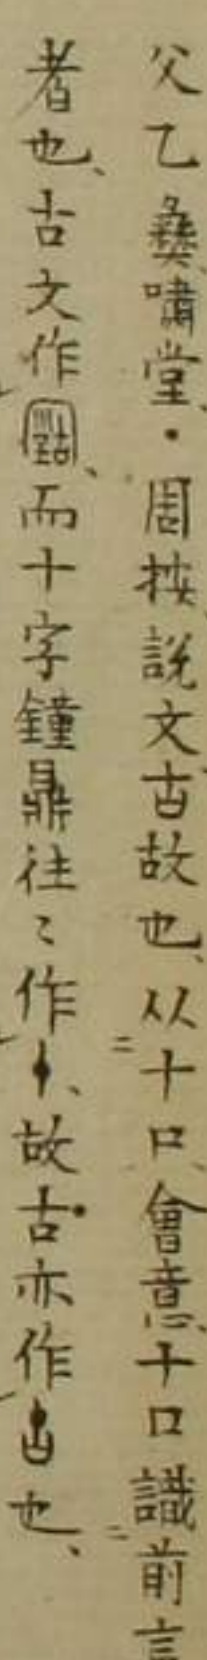 父乙彝嘯堂・固按說文古故也、从十口、會意、十口識前言
者也、古文作、而十字鐘鼎往〻作、故古亦作也、